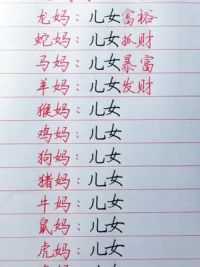 龙妈：儿女富裕
蛇妈：儿女抓财
马妈：儿女暴富
羊妈：儿女发财
猴妈：儿女
鸡妈：儿女
狗妈：儿女
猪妈：儿女
牛妈：儿女
鼠妈：儿女
虎妈：儿女